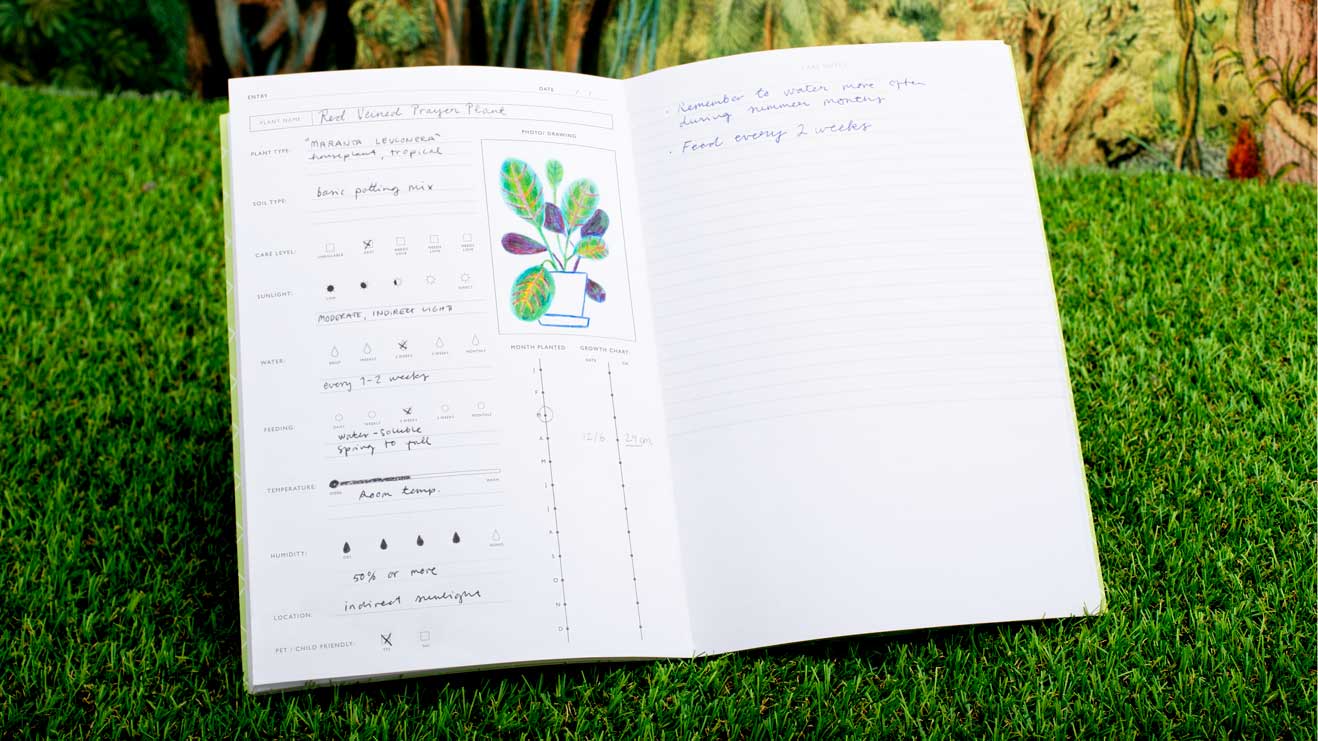 ENTRY
DATE
PLANT NAME: Red Veined Prayer Plant
PLANT TYPE: "MARANTA LEUCONERA"
houseplant, tropical
PHOTO/ DRAWING
SOIL TYPE: basic potting mix
CARE LEVEL:
UNKILLABLE EASY NEEDS LOVE NEEDS LOVE NEEDS LOVE
SUNLIGHT:
LOW DIRECT
MODERATE, INDIRECT LIGHT
WATER:
WEEKLY 2 WEEKS 3 WEEKS MONTHLY
every 1-2 weeks
FEEDING:
DAILY WEEKLY 2 WEEKS 3 WEEKS MONTHLY
water-soluble
spring to fall
TEMPERATURE:
COOL WARM
Room temp.
HUMIDITY:
DRY HUMID
50% or more
LOCATION: indirect sunlight
PET / CHILD FRIENDLY:
YES NO
MONTH PLANTED
J
F
M
A
M
J
J
A
S
O
N
D
GROWTH CHART
DATE CM
12/6 29cm
CARE NOTES
· Remember to water more often
during summer months
· Feed every 2 weeks